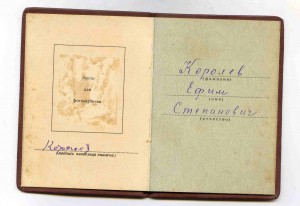 Место
для
фотокарточки
Королев
(подпись владельца книжки)
Королев
(фамилия)
Ефим
(имя)
Степанович
(отчество)